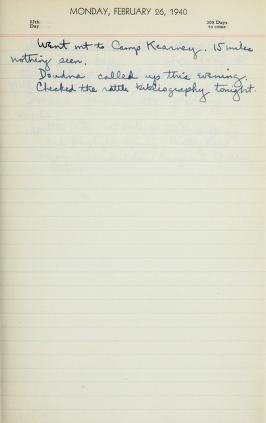 MONDAY, FEBRUARY 26, 1940
57th Day
309 Days to come
Went out to Camp Kearney. 15 miles
nothing seen.
Doudna called up this evening.
Checked the rattle bibliography tonight.